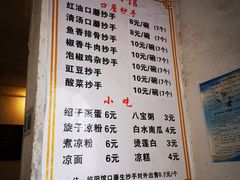 口蘑抄手
红油口蘑抄手 8元/碗 (7个)
清汤口蘑抄手 8元/碗 (7个)
鱼香排骨抄手 10元/碗 (7个)
椒香牛肉抄手 10元/碗 (7个)
泡椒鸡杂抄手 10元/碗 (7个)
豇豆抄手 10元/碗 (7个)
酸菜抄手 10元/碗 (7个)
小吃
绍子蒸蛋 6元 八宝粥 3元
旋子凉粉 6元 白木南瓜 4元
煮凉粉 6元 烫莲白 3元
凉面 6元 凉糕 4元
口蘑生抄手对外出售0.7元/个